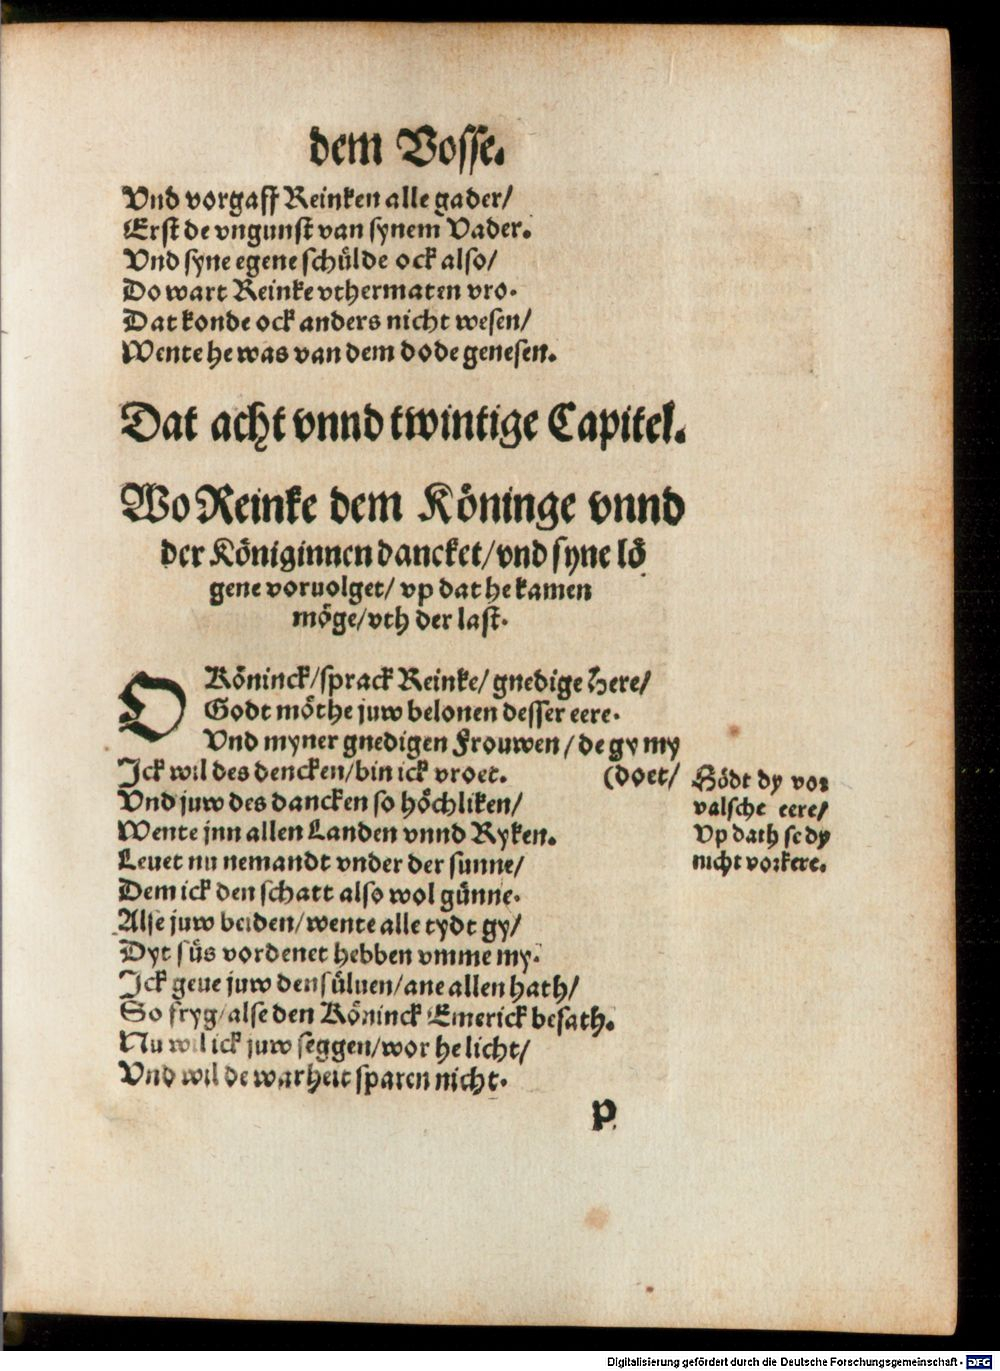 dem Vosse.
Vnd vorgaff Reinken alle gader/
Erst de vngunst van synem Vader.
Vnd syne egene schülde ock also/
Do wart Reinke vthermaten vro.
Dat konde ock anders nicht wesen/
Wente he was van dem dode genesen.
Dat acht vnnd twintige Capitel.
Wo Reinke dem Köninge vnnd
der Königinnen dancket/vnd syne lö
gene voruolget/ vp dat he kamen
möge/vth der last.
O Köninck/sprack Reinke/ gnedige Here/
Godt möthe juw belonen desser eere.
Vnd myner gnedigen Frouwen/de gy my
(doet/
Ick wil des dencken/bin ick vroet.
Vnd juw des dancken so höchliken/
Wente jnn allen Landen vnnd Ryken.
Leuet nu nemandt vnder der sunne/
Dem ick den schatt also wol günne.
Alse juw beiden/wente alle tydt gy/
Dyt süs vordenet hebben vmme my.
Ick geue juw den süluen/ane allen hath/
So fryg/alse den Köninck Emerick besath.
Nu wil ick juw seggen/wor he licht/
Vnd wil de warheit sparen nicht.
Hödt dy vor
valsche eere/
Vp dath se dy
nicht vorkere.
P
Digitalisierung gefördert durch die Deutsche Forschungsgemeinschaft - DFG